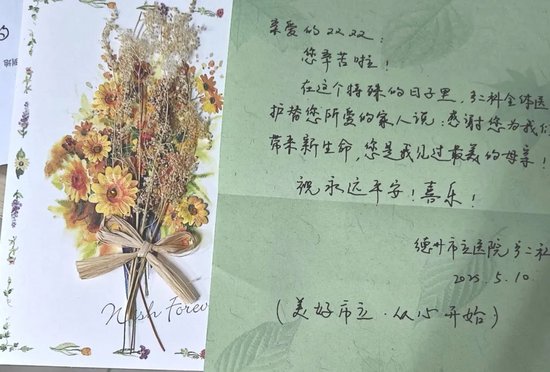 亲爱的ZZ ZZ:
您辛苦啦!
在这个特殊的日子里,产二科全体医
护替您所爱的家人说:感谢您为我们
带来新生命,您是我见过最美的母亲!
祝永远平安!喜乐!
德州市立医院产二科
2025.5.10.
(美好市立·从心开始)
Wish Forever